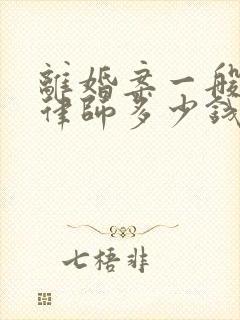 離婚案一般
律師多少錢
七梧非